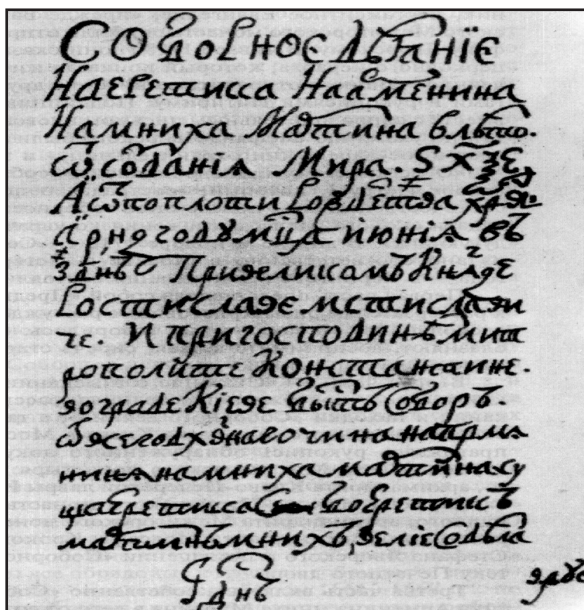 СОБОРНОЕ ДѢѦНЇЕ
На еретика На арменина
На мниха Мартина в лѣто.
ѿ созданїѧ Мира. ҂ЅХѮЕ
А ѿ по плоти рождества
году мц҃а июнїа въ
днь При великомъ Кнѧзе
Ростиславе мстислави
че. И при господинѣ мит
рополите Константине.
во граде Кїеве бысть соборъ.
ѿ всего дх҃внаго чина на арме
нина на мниха мартина су
ща еретика бо еретикъ
мартинъ мнихъ, зелїе содѣла
днь